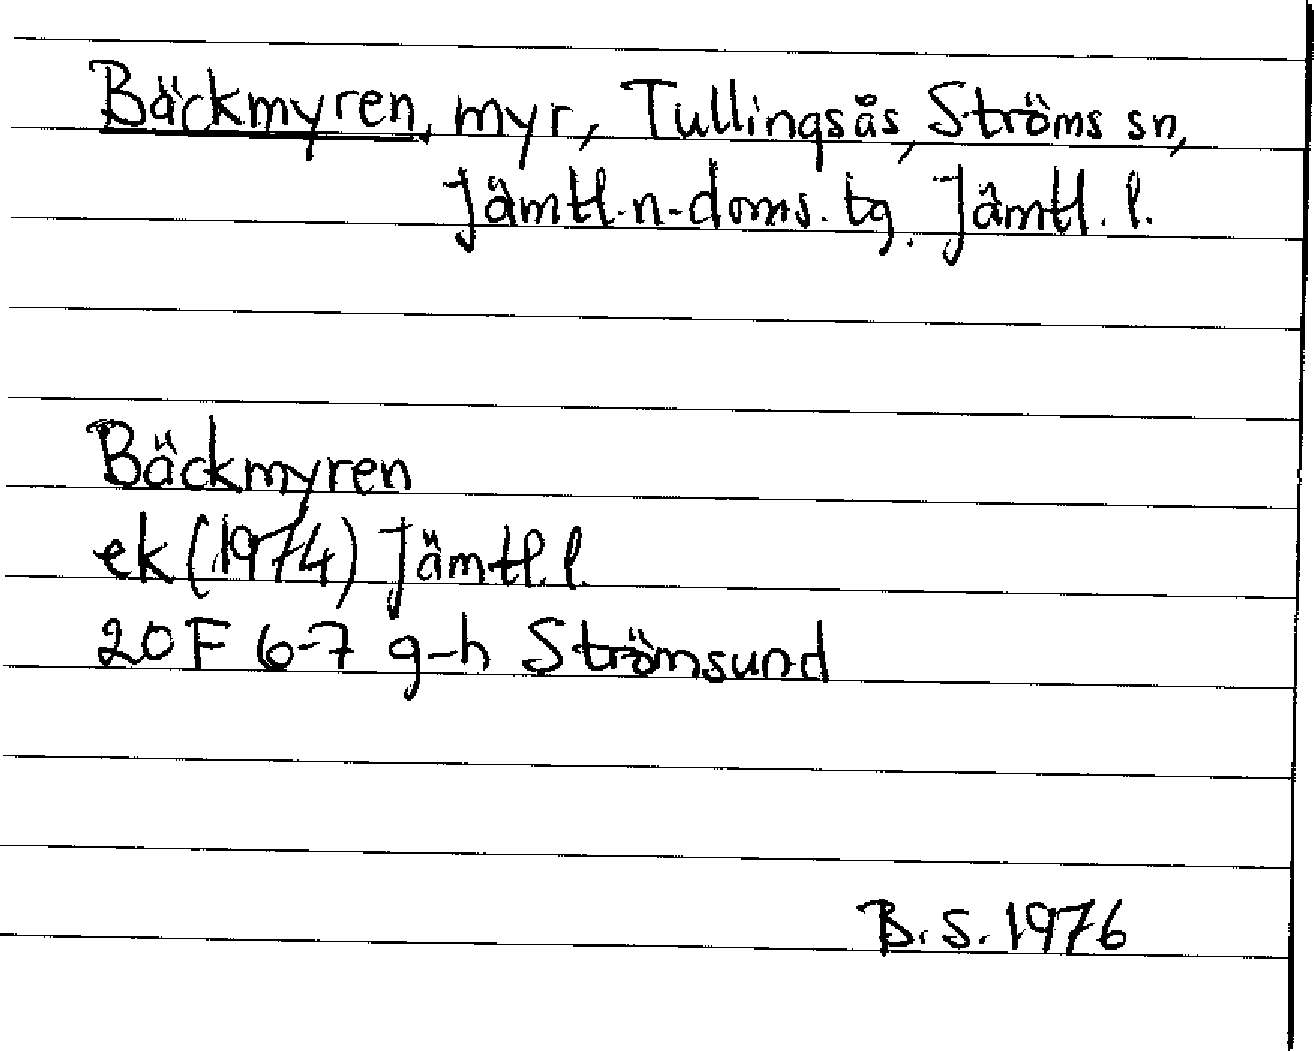 Bäckmyren, myr, Tullingsås, Ströms sn,
Jämtl.n-doms.tg. Jämtl. l.
Bäckmyren
ek (1974) Jämtl. l.
20 F 6-7 g-h Strömsund
B. S. 1976